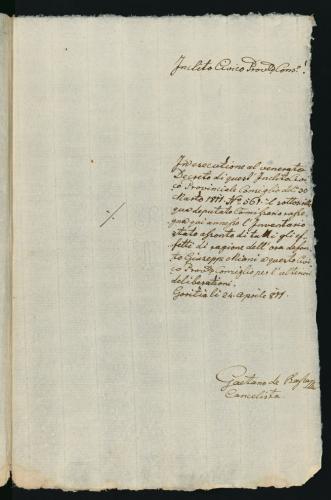 Inclito Civico Provle Cons.!
In esecuzione al venerato
Decreto di quest' Inclito Civi
co Provinciale Consiglio del 30
Marzo 1811. N. 561. il sottoscritto
qua deputato Comissario rasse
gna qui annesso l' Inventario
stato afronto di tutti gli ef
fetti di ragione dell' ora defon
to Giuseppe Miani a questo Civi
co Provle Consiglio per l' ulteriori
deliberationi.
Gorizia li 24 Aprile 811.
Gaetano de
Cancelista